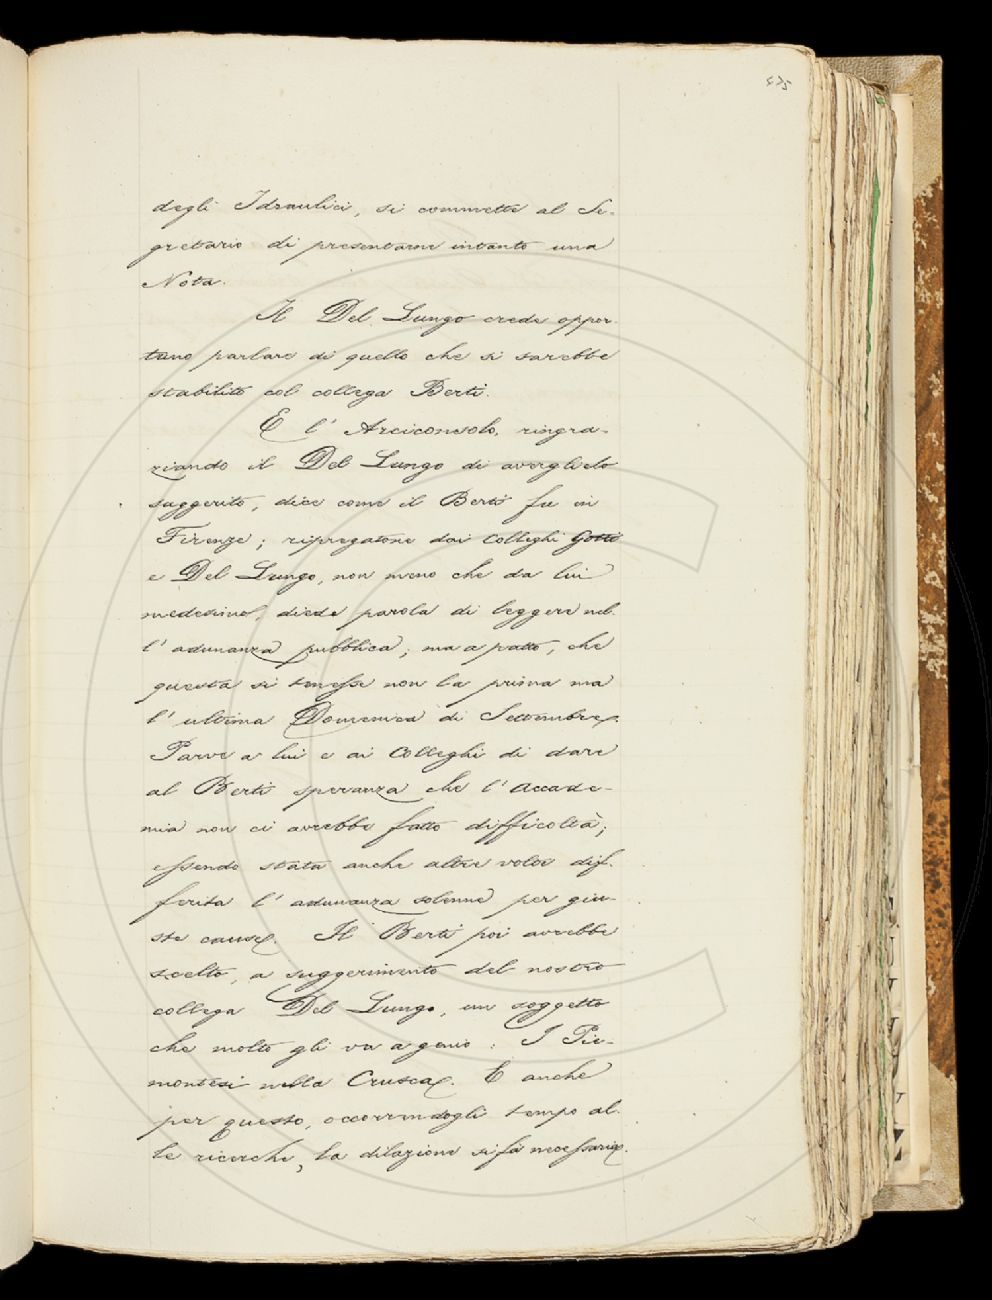 575
degli Idraulici, si commette al Se-
gretario di presentarne intanto una
Nota.
Il Del Lungo crede oppor-
tuno parlare di quello che si sarebbe
stabilito col collega Berti.
E l'Arciconsolo, ringra-
ziando il Del Lungo di averglielo
suggerito, dice come il Berti fu in
Firenze; ripregatone dai Colleghi Gotti
e Del Lungo, non meno che da lui
medesimo, diede parola di leggere nel-
l'adunanza pubblica; ma a patto, che
questa si tenesse non la prima ma
l'ultima Domenica di Settembre.
Parve a lui e ai Colleghi di dare
al Berti speranza che l'Accade-
mia non ci avrebbe fatto difficoltà;
essendo stata anche altre volte dif-
ferita l'adunanza solenne per giu-
ste cause. Il Berti poi avrebbe
scelto, a suggerimento del nostro
collega Del Lungo, un soggetto
che molto gli va a genio: I Pie-
montesi nella Crusca. E anche
per questo, occorrendogli tempo al-
le ricerche, la dilazione si fa necessaria.